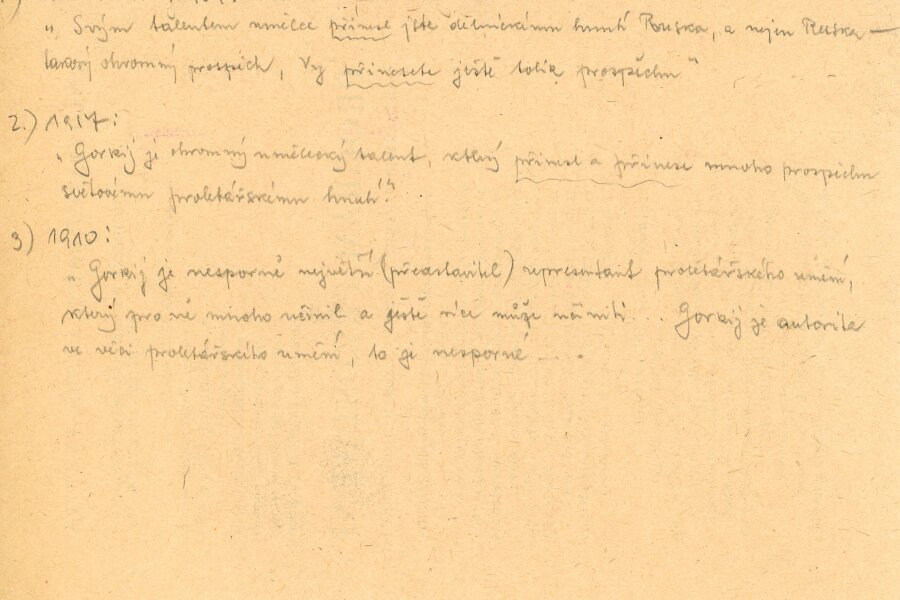 „Svým talentem umělce přinesl jste dělnickému hnutí Ruska, a nejen Ruska —
takový ohromný prospěch, Vy přinesete ještě tolik prospěchu“
2.) 1917:
„Gorkij je ohromný umělecký talent, který přinesl a přinese mnoho prospěchu
světovému proletářskému hnutí“
3) 1910:
„Gorkij je nesporně největší (představitel) representant proletářského umění,
který pro ně mnoho učinil a ještě více může učiniti... Gorkij je autorita
ve věci proletářského umění, to je nesporné....